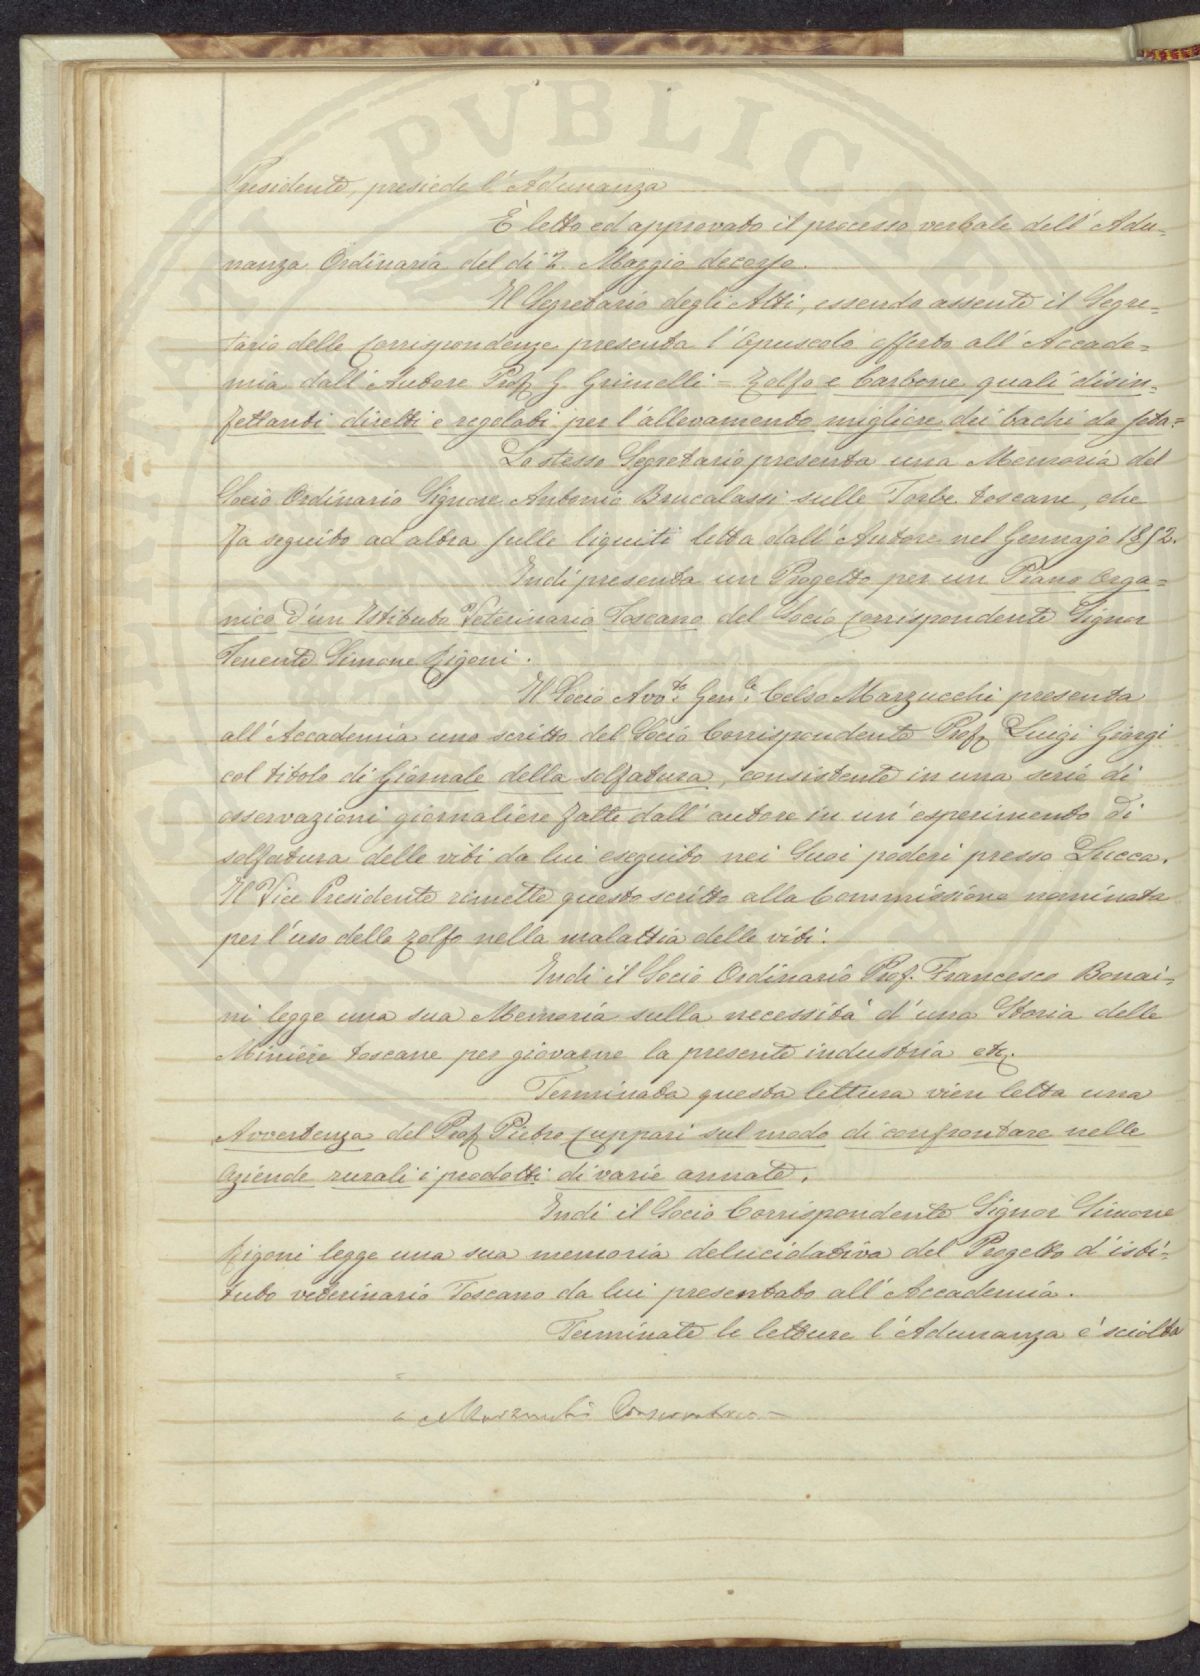 PVBLICA
Presidente, presiede l'Adunanza
È letto ed approvato il processo verbale dell'Adu=
nanza Ordinaria del dì 2. Maggio decorso.
Il Segretario degli Atti, essendo assente il Segre=
tario delle Corrispondenze presenta l'opuscolo offerto all'Accade=
mia dall'Autore Prof. G. Grimelli = Zolfo e Carbone quali disin=
fettanti diretti e regolati per l'allevamento migliore dei bachi da seta=
Lo stesso Segretario presenta una Memoria del
Socio Ordinario Signore Antonio Brucalassi sulle Torbe toscane, che
fa seguito ad altra sulle ligniti letta dall'Autore nel Gennajo 1852.
Indi presenta un Progetto per un Piano orga=
nico d'un Istituto Veterinario Toscano del Socio Corrispondente Signor
Tenente Simone Rigoni.
Il Socio Avv.to Gen.le Celso Marzucchi presenta
all'Accademia uno scritto del Socio Corrispondente Prof. Luigi Giorgi
col titolo di Giornale della solfatura, consistente in una serie di
osservazioni giornaliere fatte dall'autore in un'esperimento di
solfatura delle viti da lui eseguito nei Suoi poderi presso Lucca.
Il Vice Presidente rimette questo scritto alla Commissione nominata
per l'uso dello zolfo nella malattia delle viti.
Indi il Socio Ordinario Prof. Francesco Bonai=
ni legge una sua Memoria sulla necessità d'una Storia delle
Miniere toscane per giovarne la presente industria etc.
Terminata questa lettura vien letta una
Avvertenza del Prof. Pietro Cuppari sul modo di confrontare nelle
Aziende rurali i prodotti di varie annate.
Indi il Socio Corrispondente Signor Simone
Rigoni legge una sua memoria delucidativa del Progetto d'isti=
tuto veterinario Toscano da lui presentato all'Accademia.
Terminate le letture l'Adunanza è sciolta